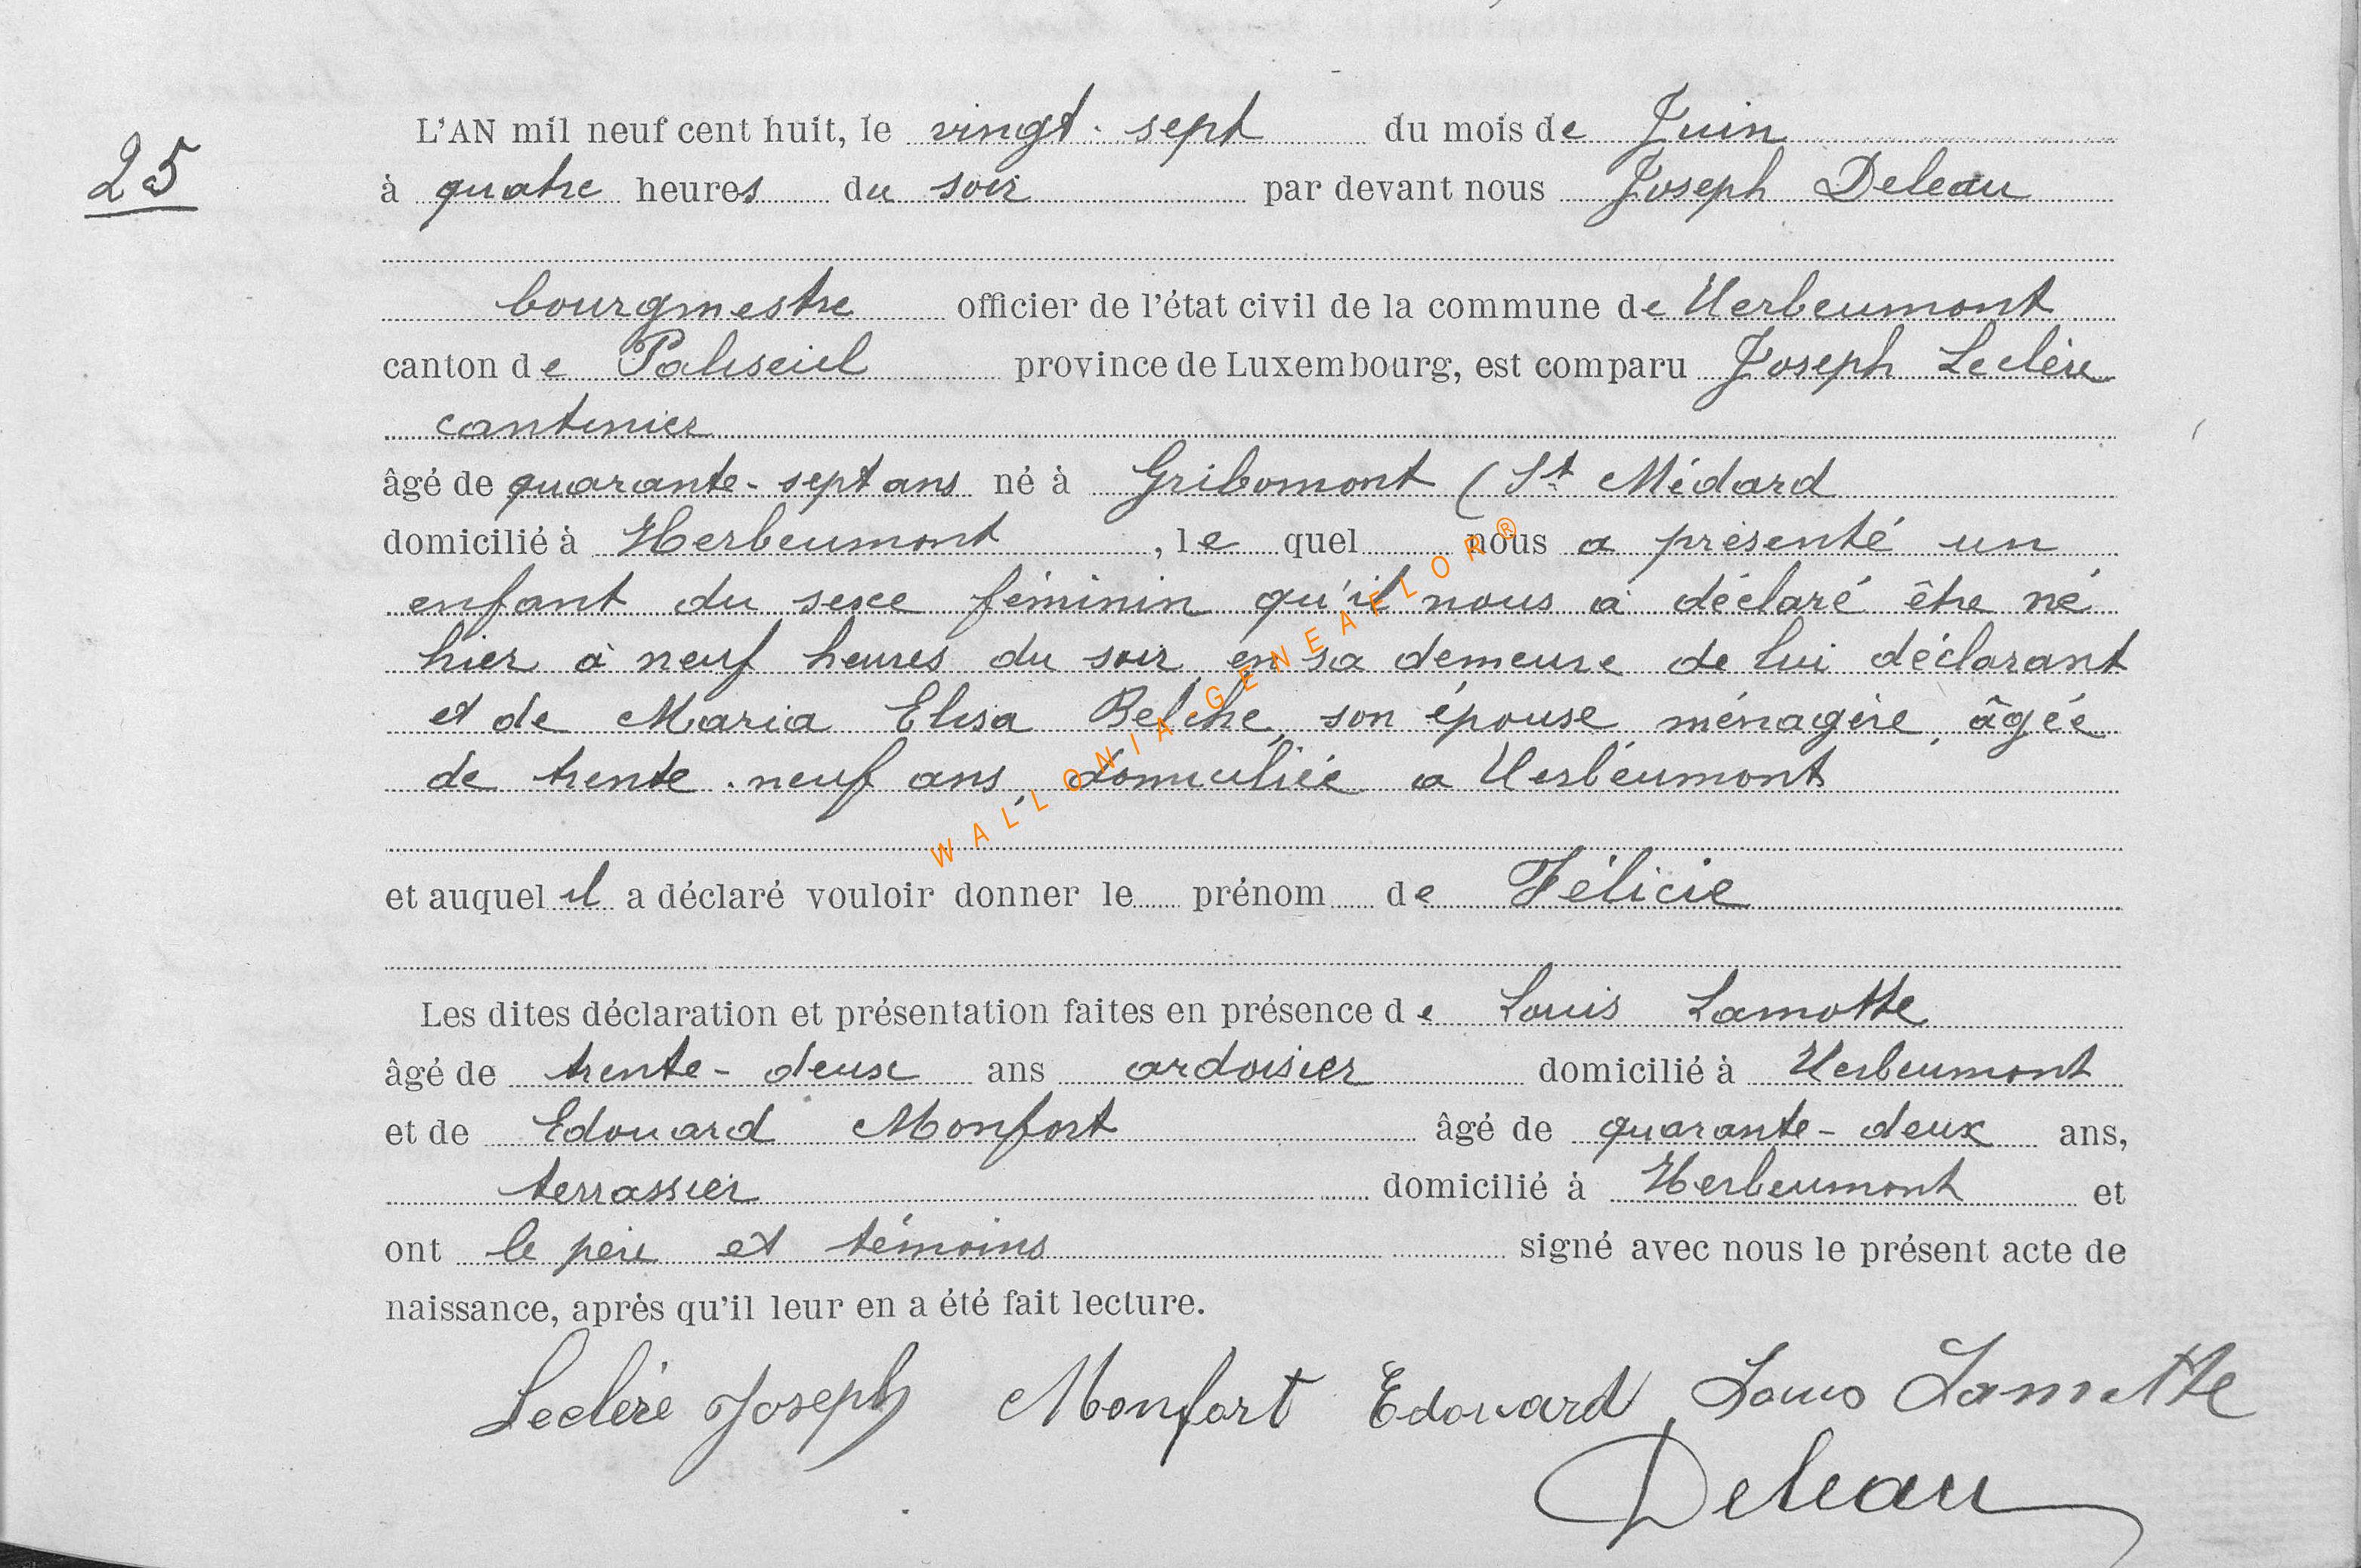 25
L'AN mil neuf cent huit, le vingt-sept du mois de Juin
à quatre heures du soir par devant nous Joseph Deleau
bourgmestre officier de l'état civil de la commune de Herbeumont
canton de Paliseul province de Luxembourg, est comparu Joseph Leclère
cantinier
âgé de quarante-sept ans né à Gribomont (St Médard
domicilié à Herbeumont, le quel nous a présenté un
enfant du sexe féminin qu'il nous a déclaré être né
hier à neuf heures du soir, en sa demeure de lui déclarant
et de Maria Elisa Belche, son épouse ménagère, âgée
de trente-neuf ans, domiciliée a Herbeumont
WALLONIA-GENEAFLOR®
et auquel il a déclaré vouloir donner le prénom de Félicie
Les dites déclaration et présentation faites en présence de Louis Lamotte
âgé de trente-deux ans ardoisier domicilié à Herbeumont
et de Edouard Monfort âgé de quarante-deux ans,
terrassier domicilié à Herbeumont et
ont le père et témoins signé avec nous le présent acte de
naissance, après qu'il leur en a été fait lecture.
Leclère Joseph Monfort Edouard Louis Lamotte
Deleau